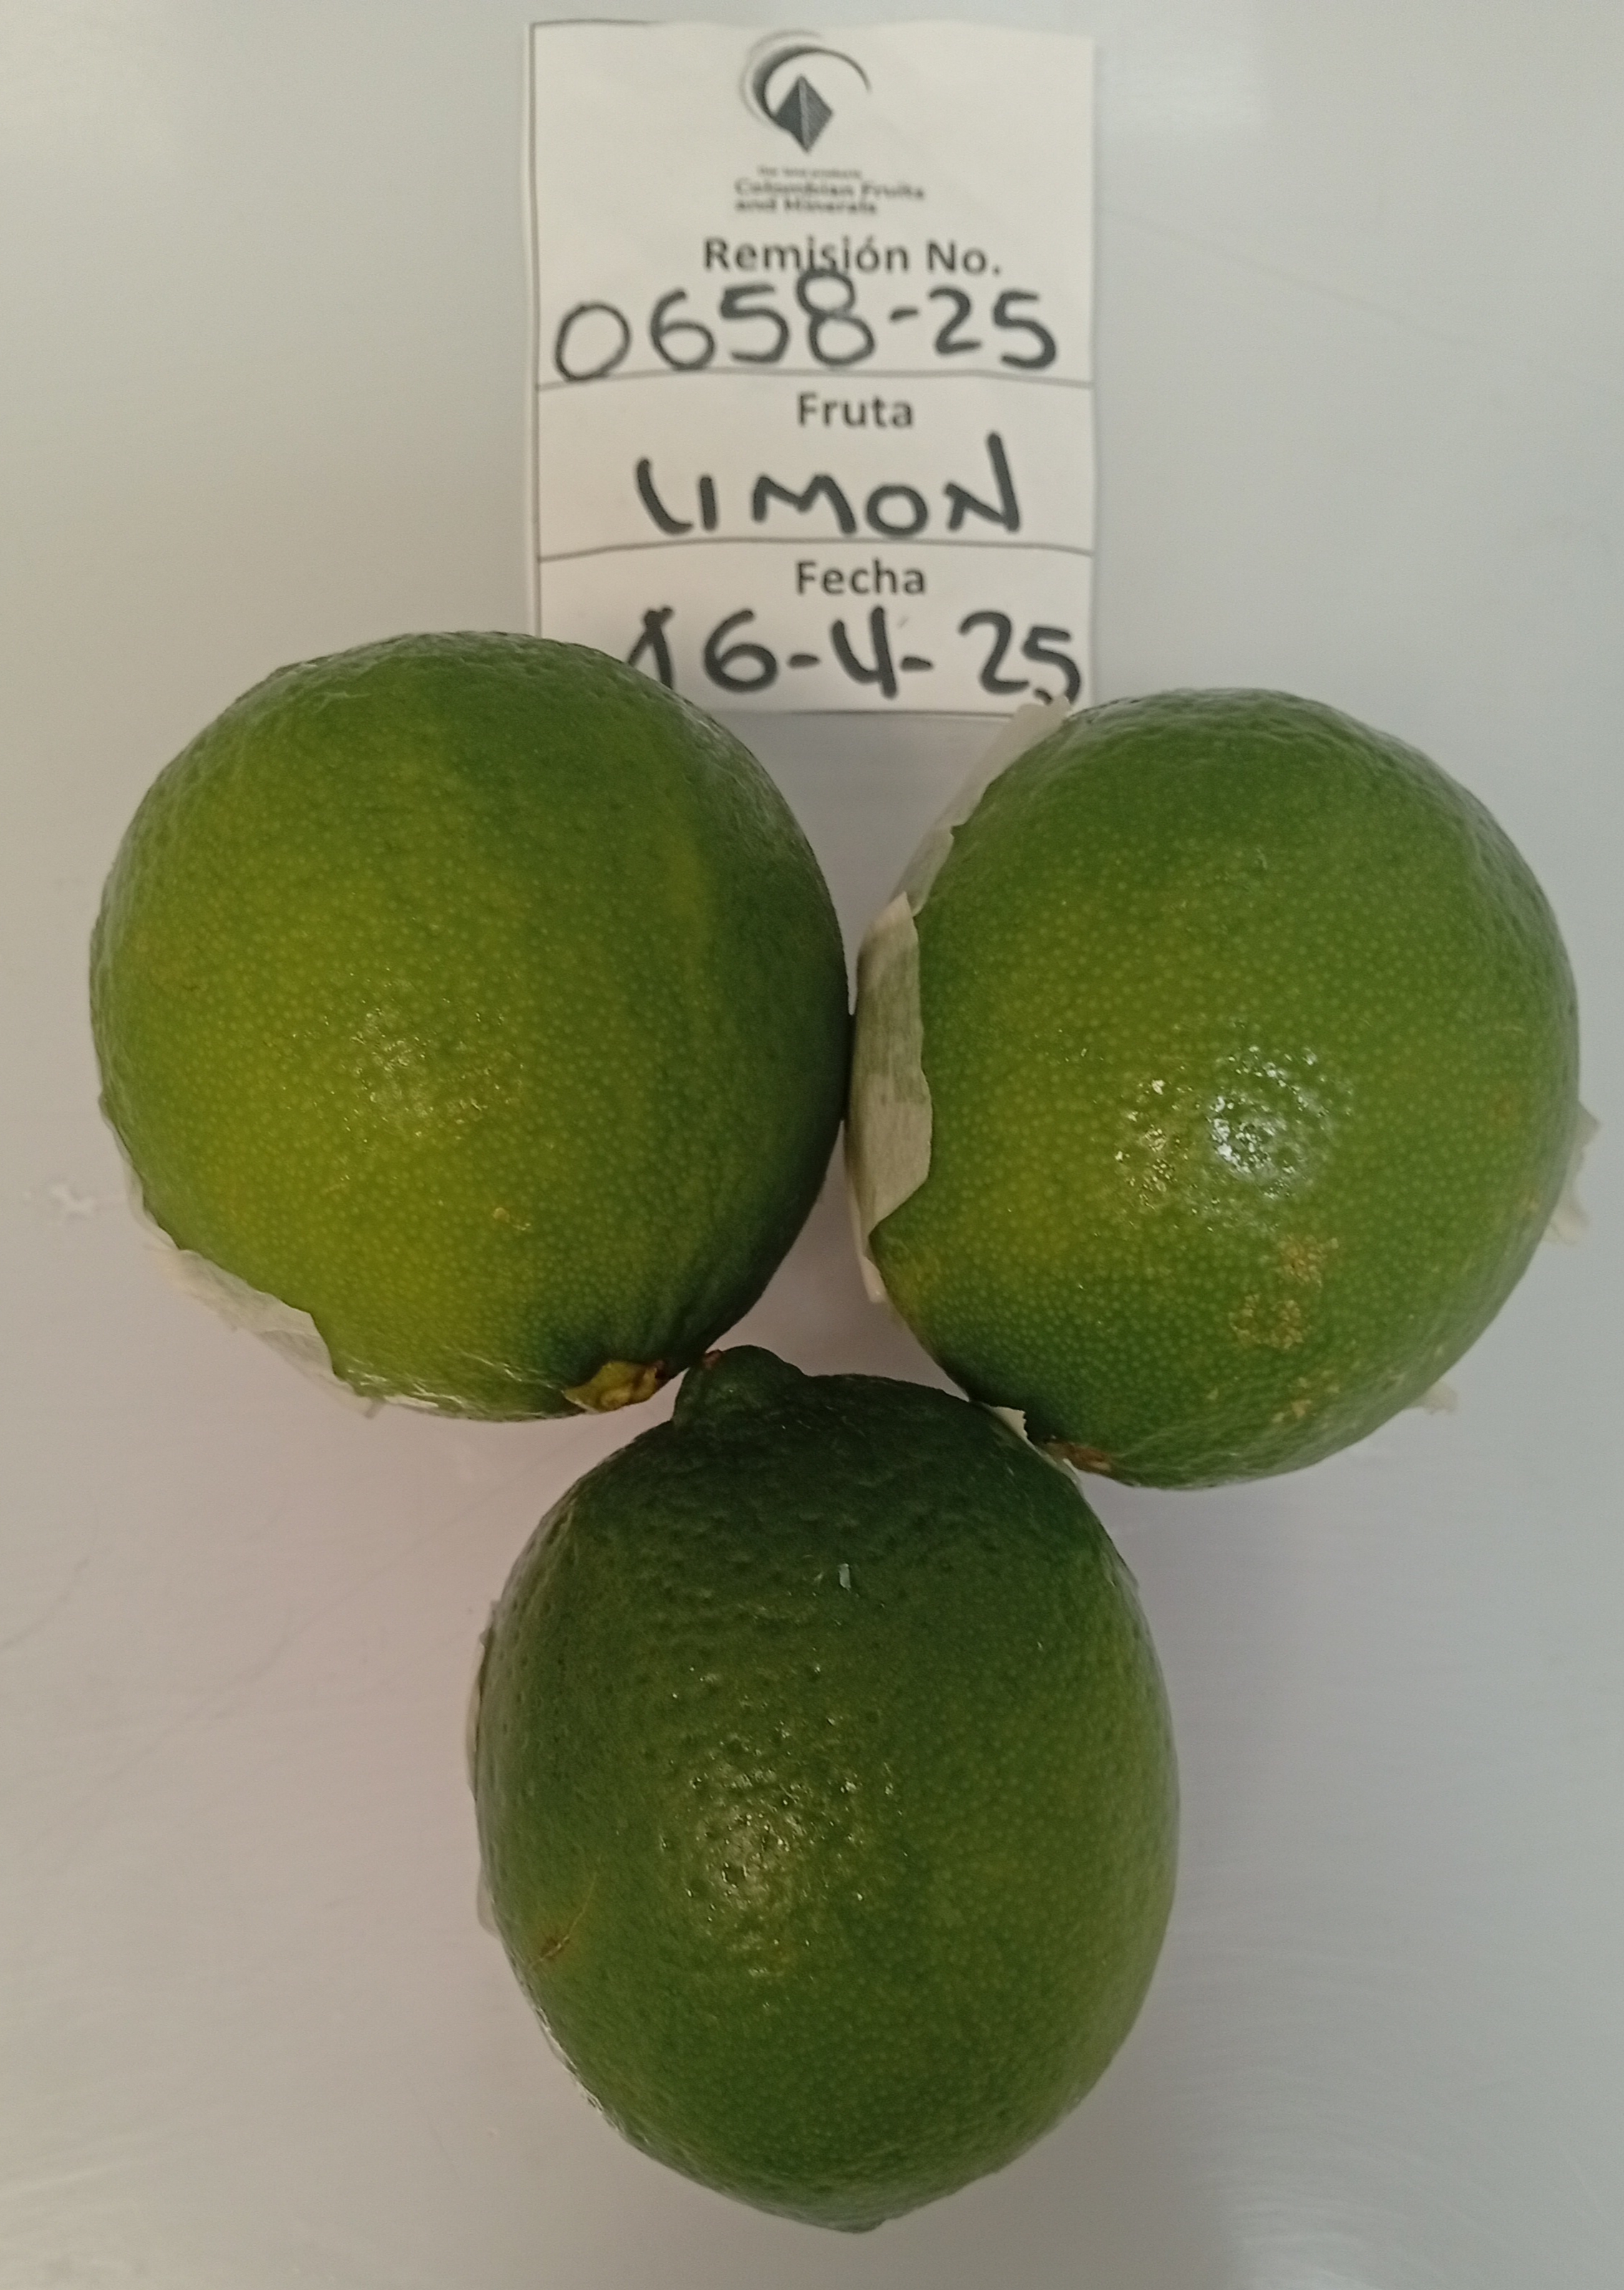 Colombian Fruits
and Minerals
Remisión No.
0658-25
Fruta
LIMON
Fecha
16-4-25